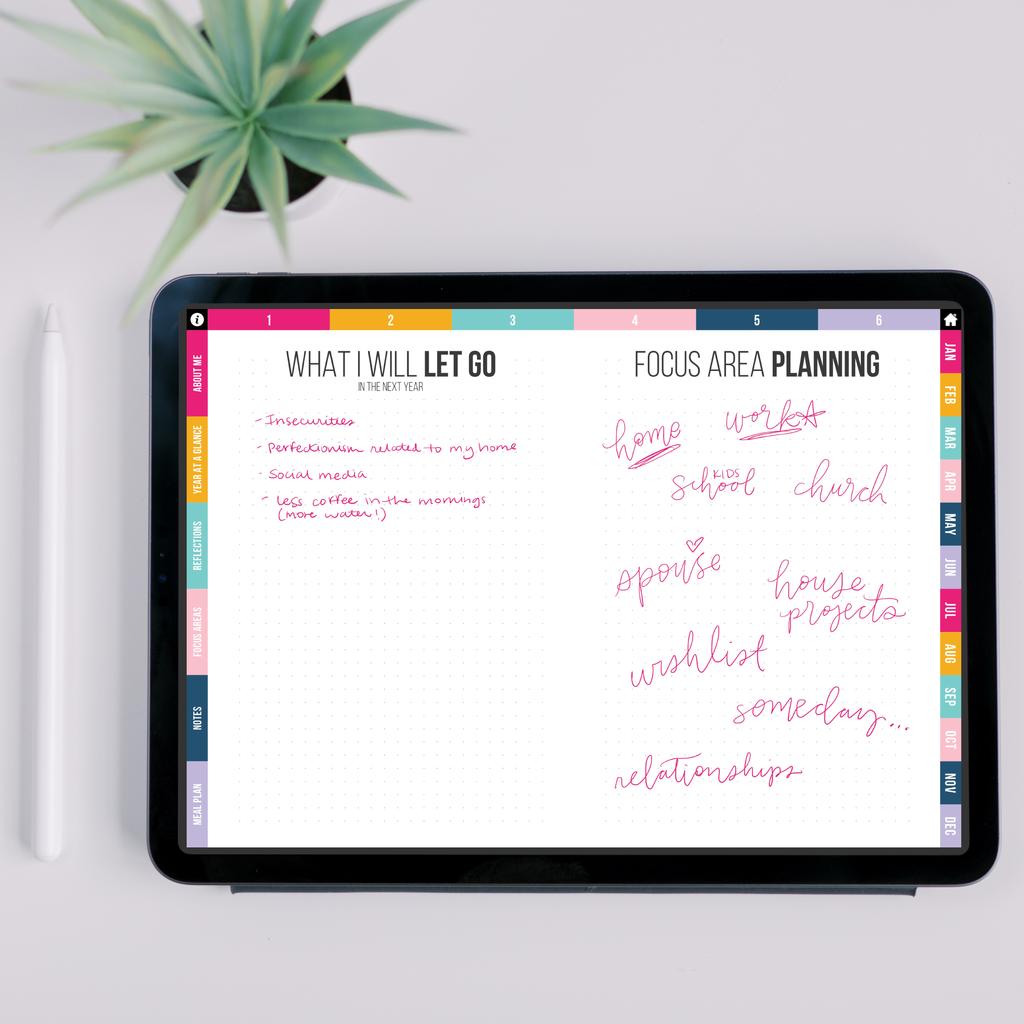 i
1
2
3
4
5
6
ABOUT ME
YEAR AT A GLANCE
REFLECTIONS
FOCUS AREAS
NOTES
MEAL PLAN
WHAT I WILL LET GO
IN THE NEXT YEAR
- Insecurities
- Perfectionism related to my home
- Social media
- less coffee in the mornings
(more water!)
FOCUS AREA PLANNING
home
work
KIDS
school
church
spouse
house
projects
wishlist
someday...
relationships
JAN
FEB
MAR
APR
MAY
JUN
JUL
AUG
SEP
OCT
NOV
DEC